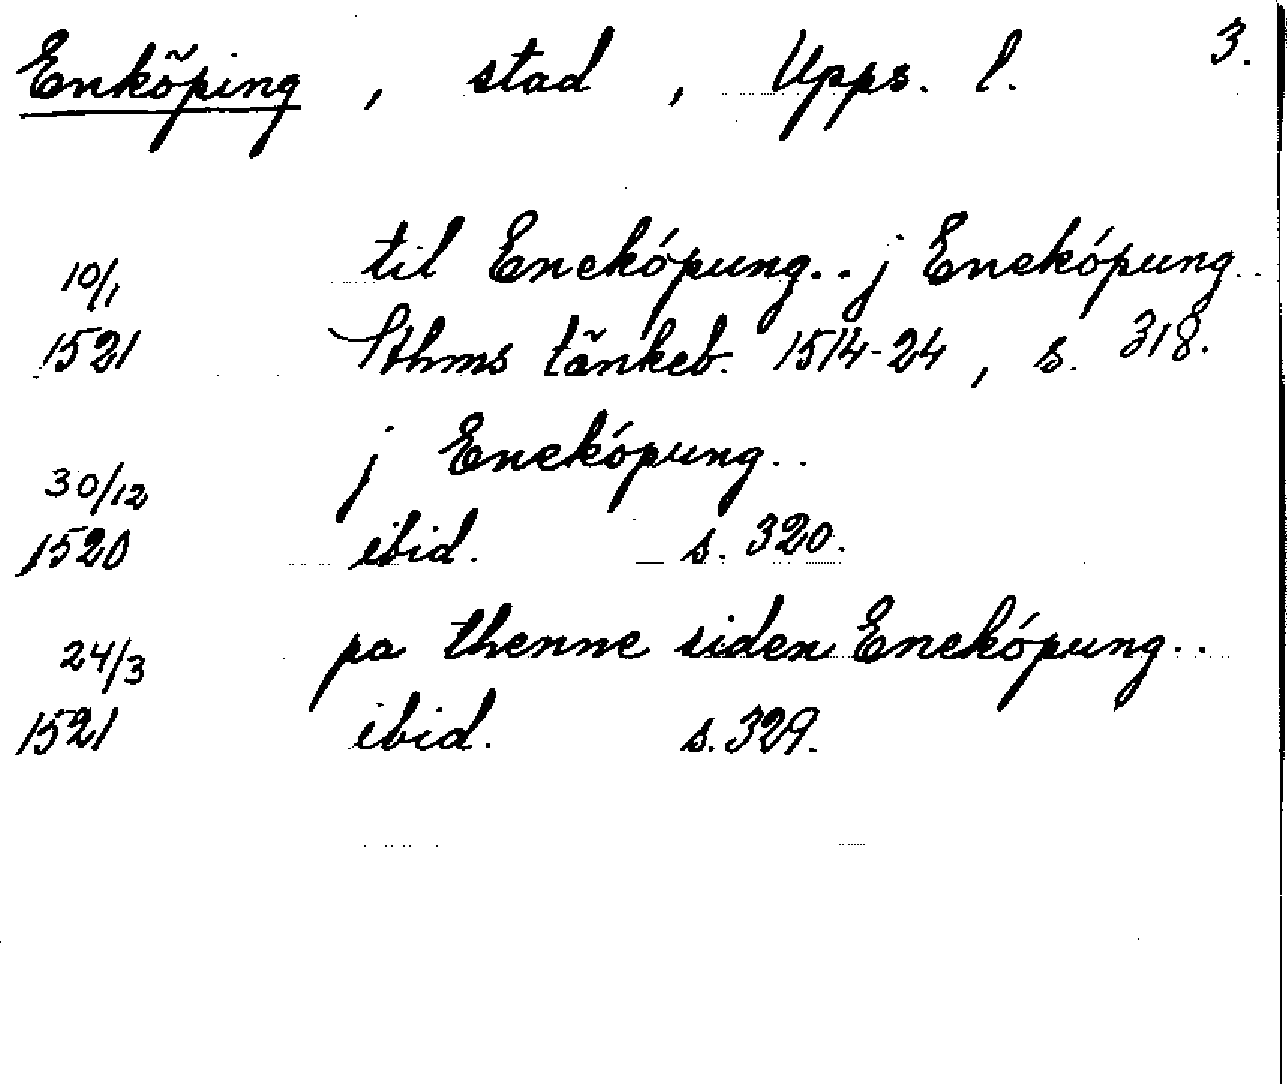 Enköping, stad, Upps. l. 3.
10/1 til Enekópung.. j Enekópung..
1521 Sthms tänkeb. 1514-24, s. 318.
30/12 j Enekópung..
1520 ibid. s. 320.
24/3 pa thenne siden Enekópung..
1521 ibid. s. 329.